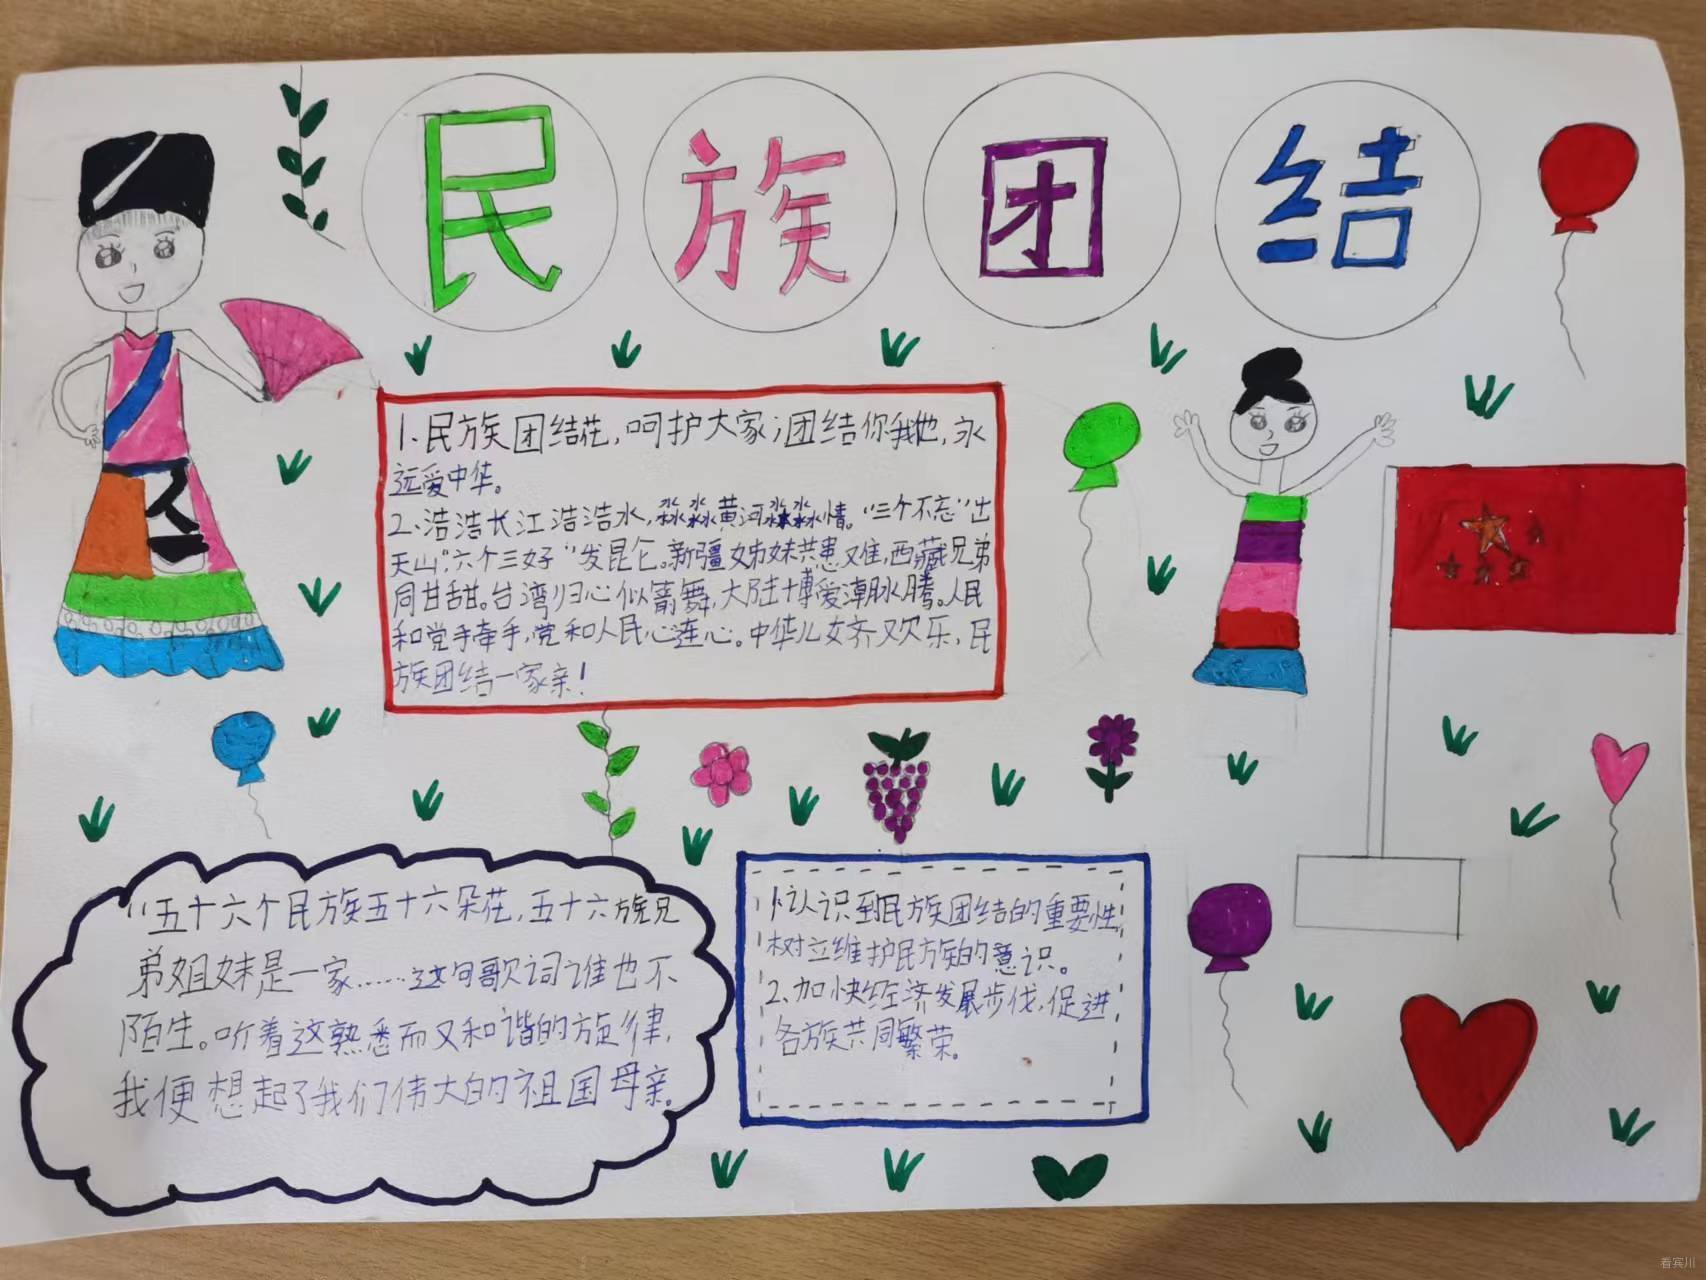 民族团结
1、民族团结花，呵护大家；团结你我他，永
远爱中华。
2、浩浩长江浩浩水，淼淼黄河淼淼情。“三个不忘”出
天山“六个三好”发昆仑。新疆姊妹共患难，西藏兄弟
同甘甜。台湾归心似箭舞，大陆博爱潮脉腾。人民
和党手牵手，党和人民心连心。中华儿女齐欢乐，民
族团结一家亲！
“五十六个民族五十六朵花，五十六族兄
弟姐妹是一家……这句歌词谁也不
陌生。听着这熟悉而又和谐的旋律，
我便想起了我们伟大的祖国母亲。
1、认识到民族团结的重要性，
树立维护民族的意识。
2、加快经济发展步伐，促进
各族共同繁荣。
看宾川